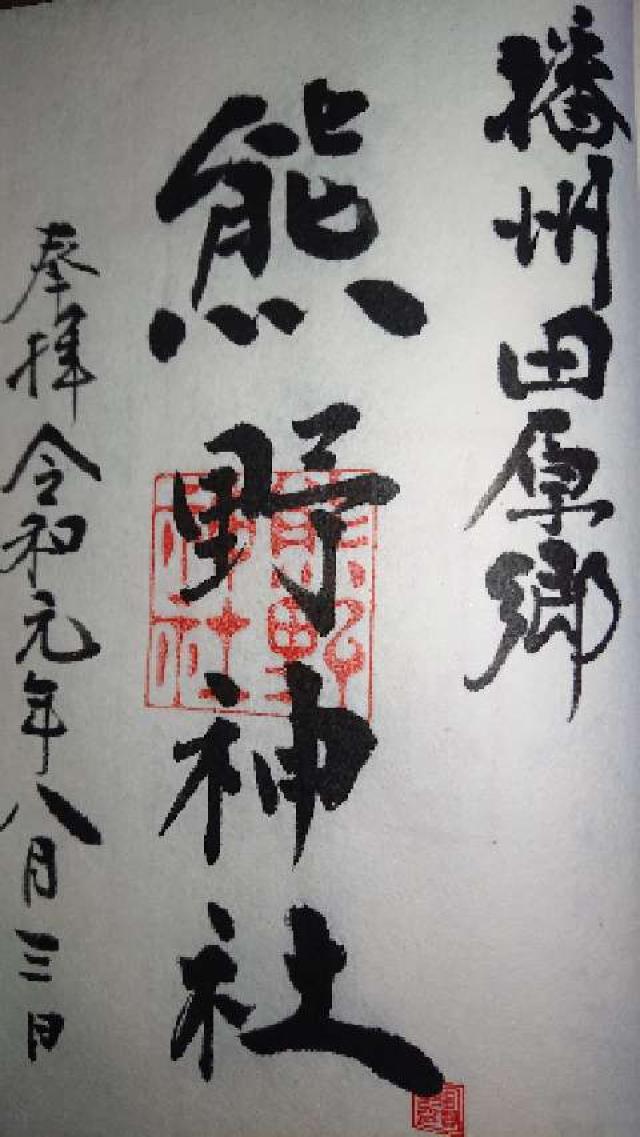 播州田原郷
熊野神社
熊野
神社
奉拝 令和元年八月三日